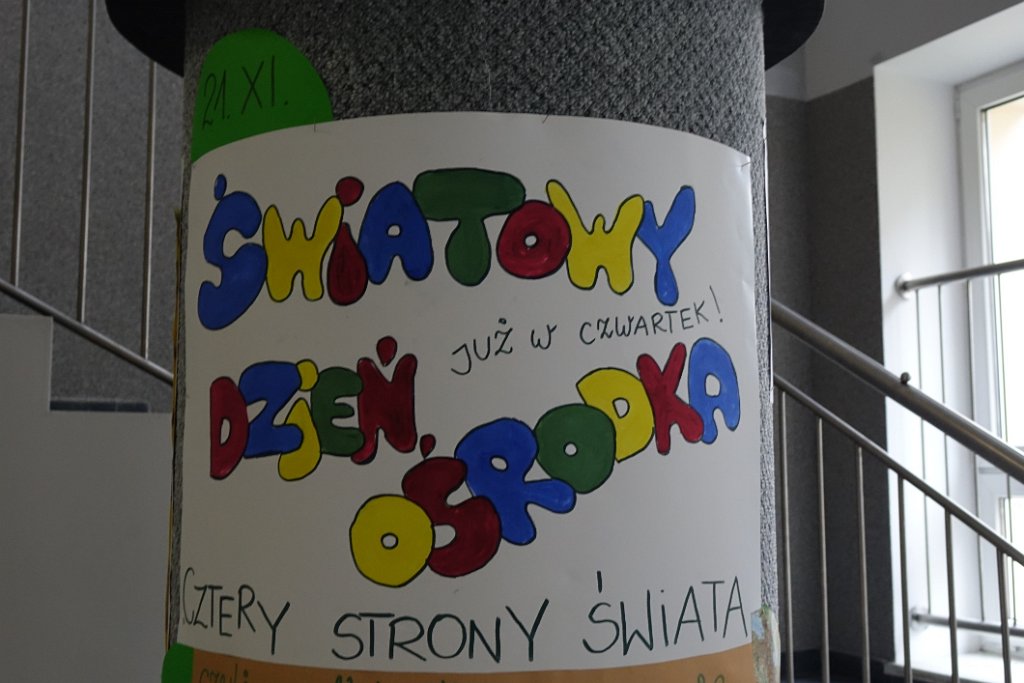 21.XI.
ŚWiATOWY
JUŻ W CZWARTEK!
DZiEŃ
OŚRODKA
CZTERY STRONY ŚWiATA